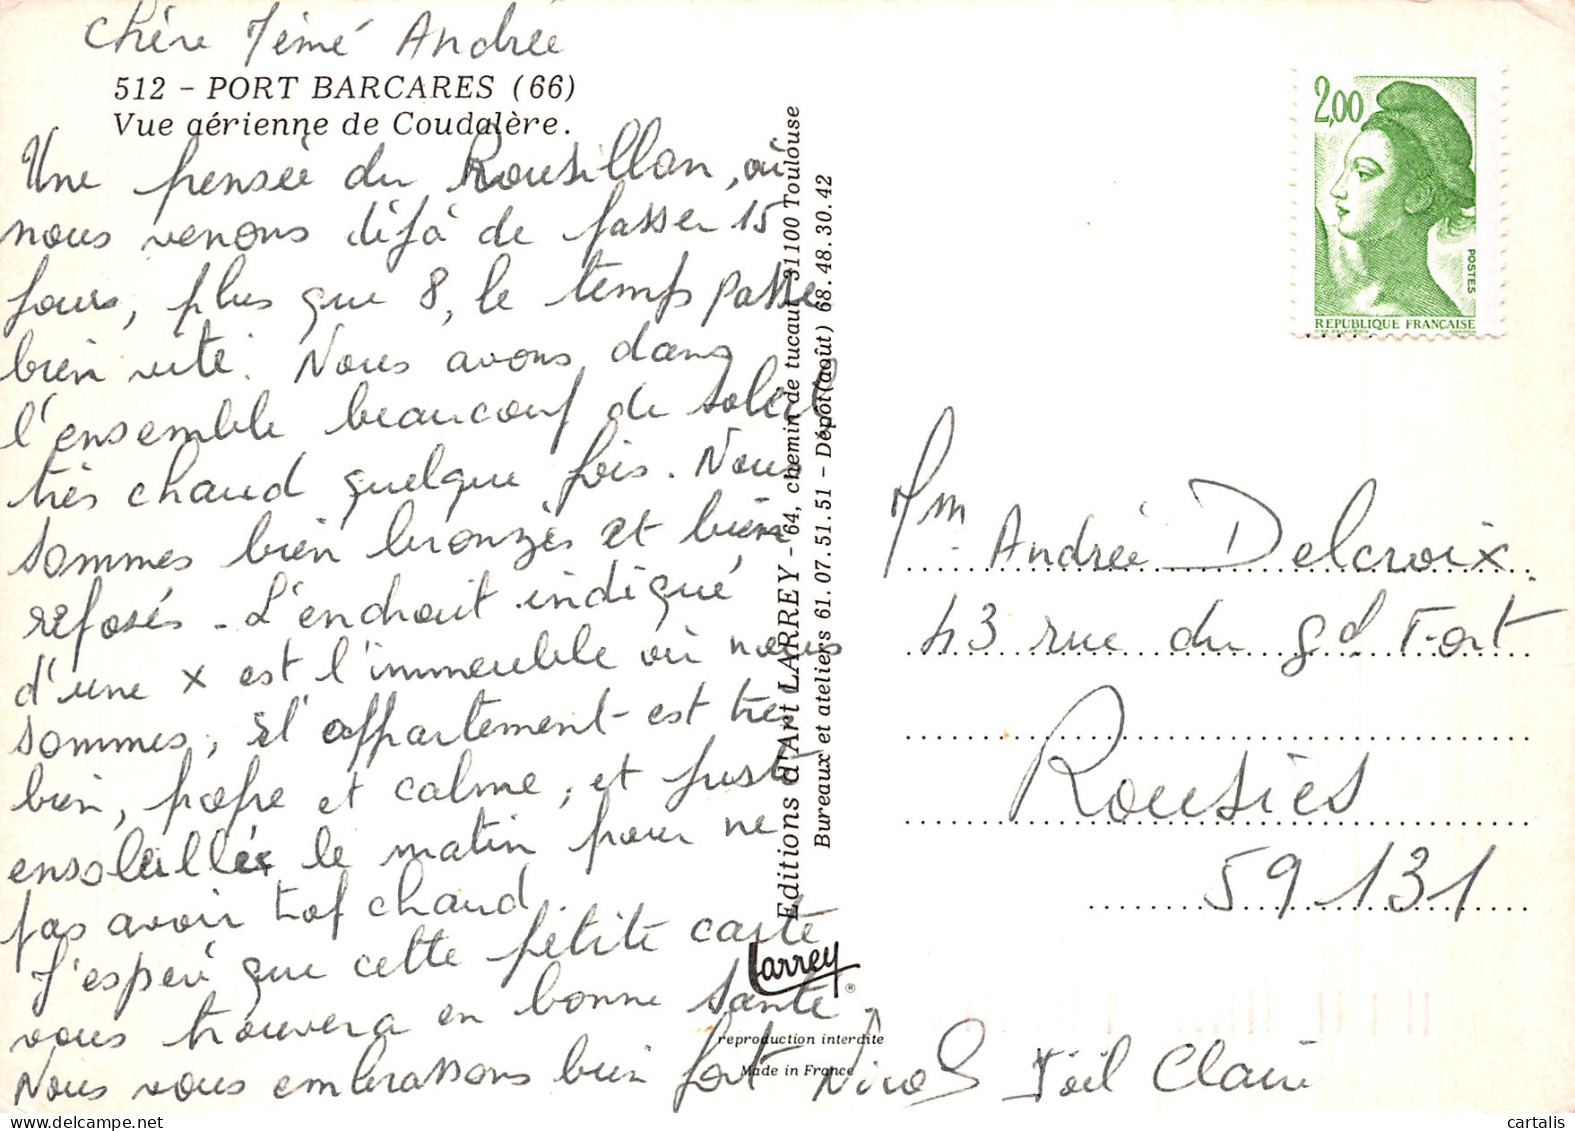 Chère Mémé Andrée
512 - PORT BARCARES (66)
Vue aérienne de Coudalère.
Une pensée du Rousillon, où
nous venons déjà de passer 15
jours, plus que 8, le temps passe
bien vite. Nous avons dans
l'ensemble beaucoup de soleil
très chaud quelque fois. Nous
sommes bien bronzés et bien
reposés - L'endroit indiqué
d'une x est l'immeuble où nous
sommes, et l'appartement est très
bien, propre et calme, et juste
ensoleillé le matin pour ne
pas avoir trop chaud.
J'espère que cette petite carte
vous trouvera en bonne santé.
Nous vous embrassons bien fort Nicole Joël Claire
Editions d'Art LARREY - 64, chemin de tucaut 31100 Toulouse
Bureaux et ateliers 61.07.51.51 - Dépôt (août) 68.48.30.42
Larrey ®
reproduction interdite
Made in France
2,00
POSTES
REPUBLIQUE FRANCAISE
Mm Andrée Delcroix
43 rue du gd Fort
Rousies
59131
cartalis